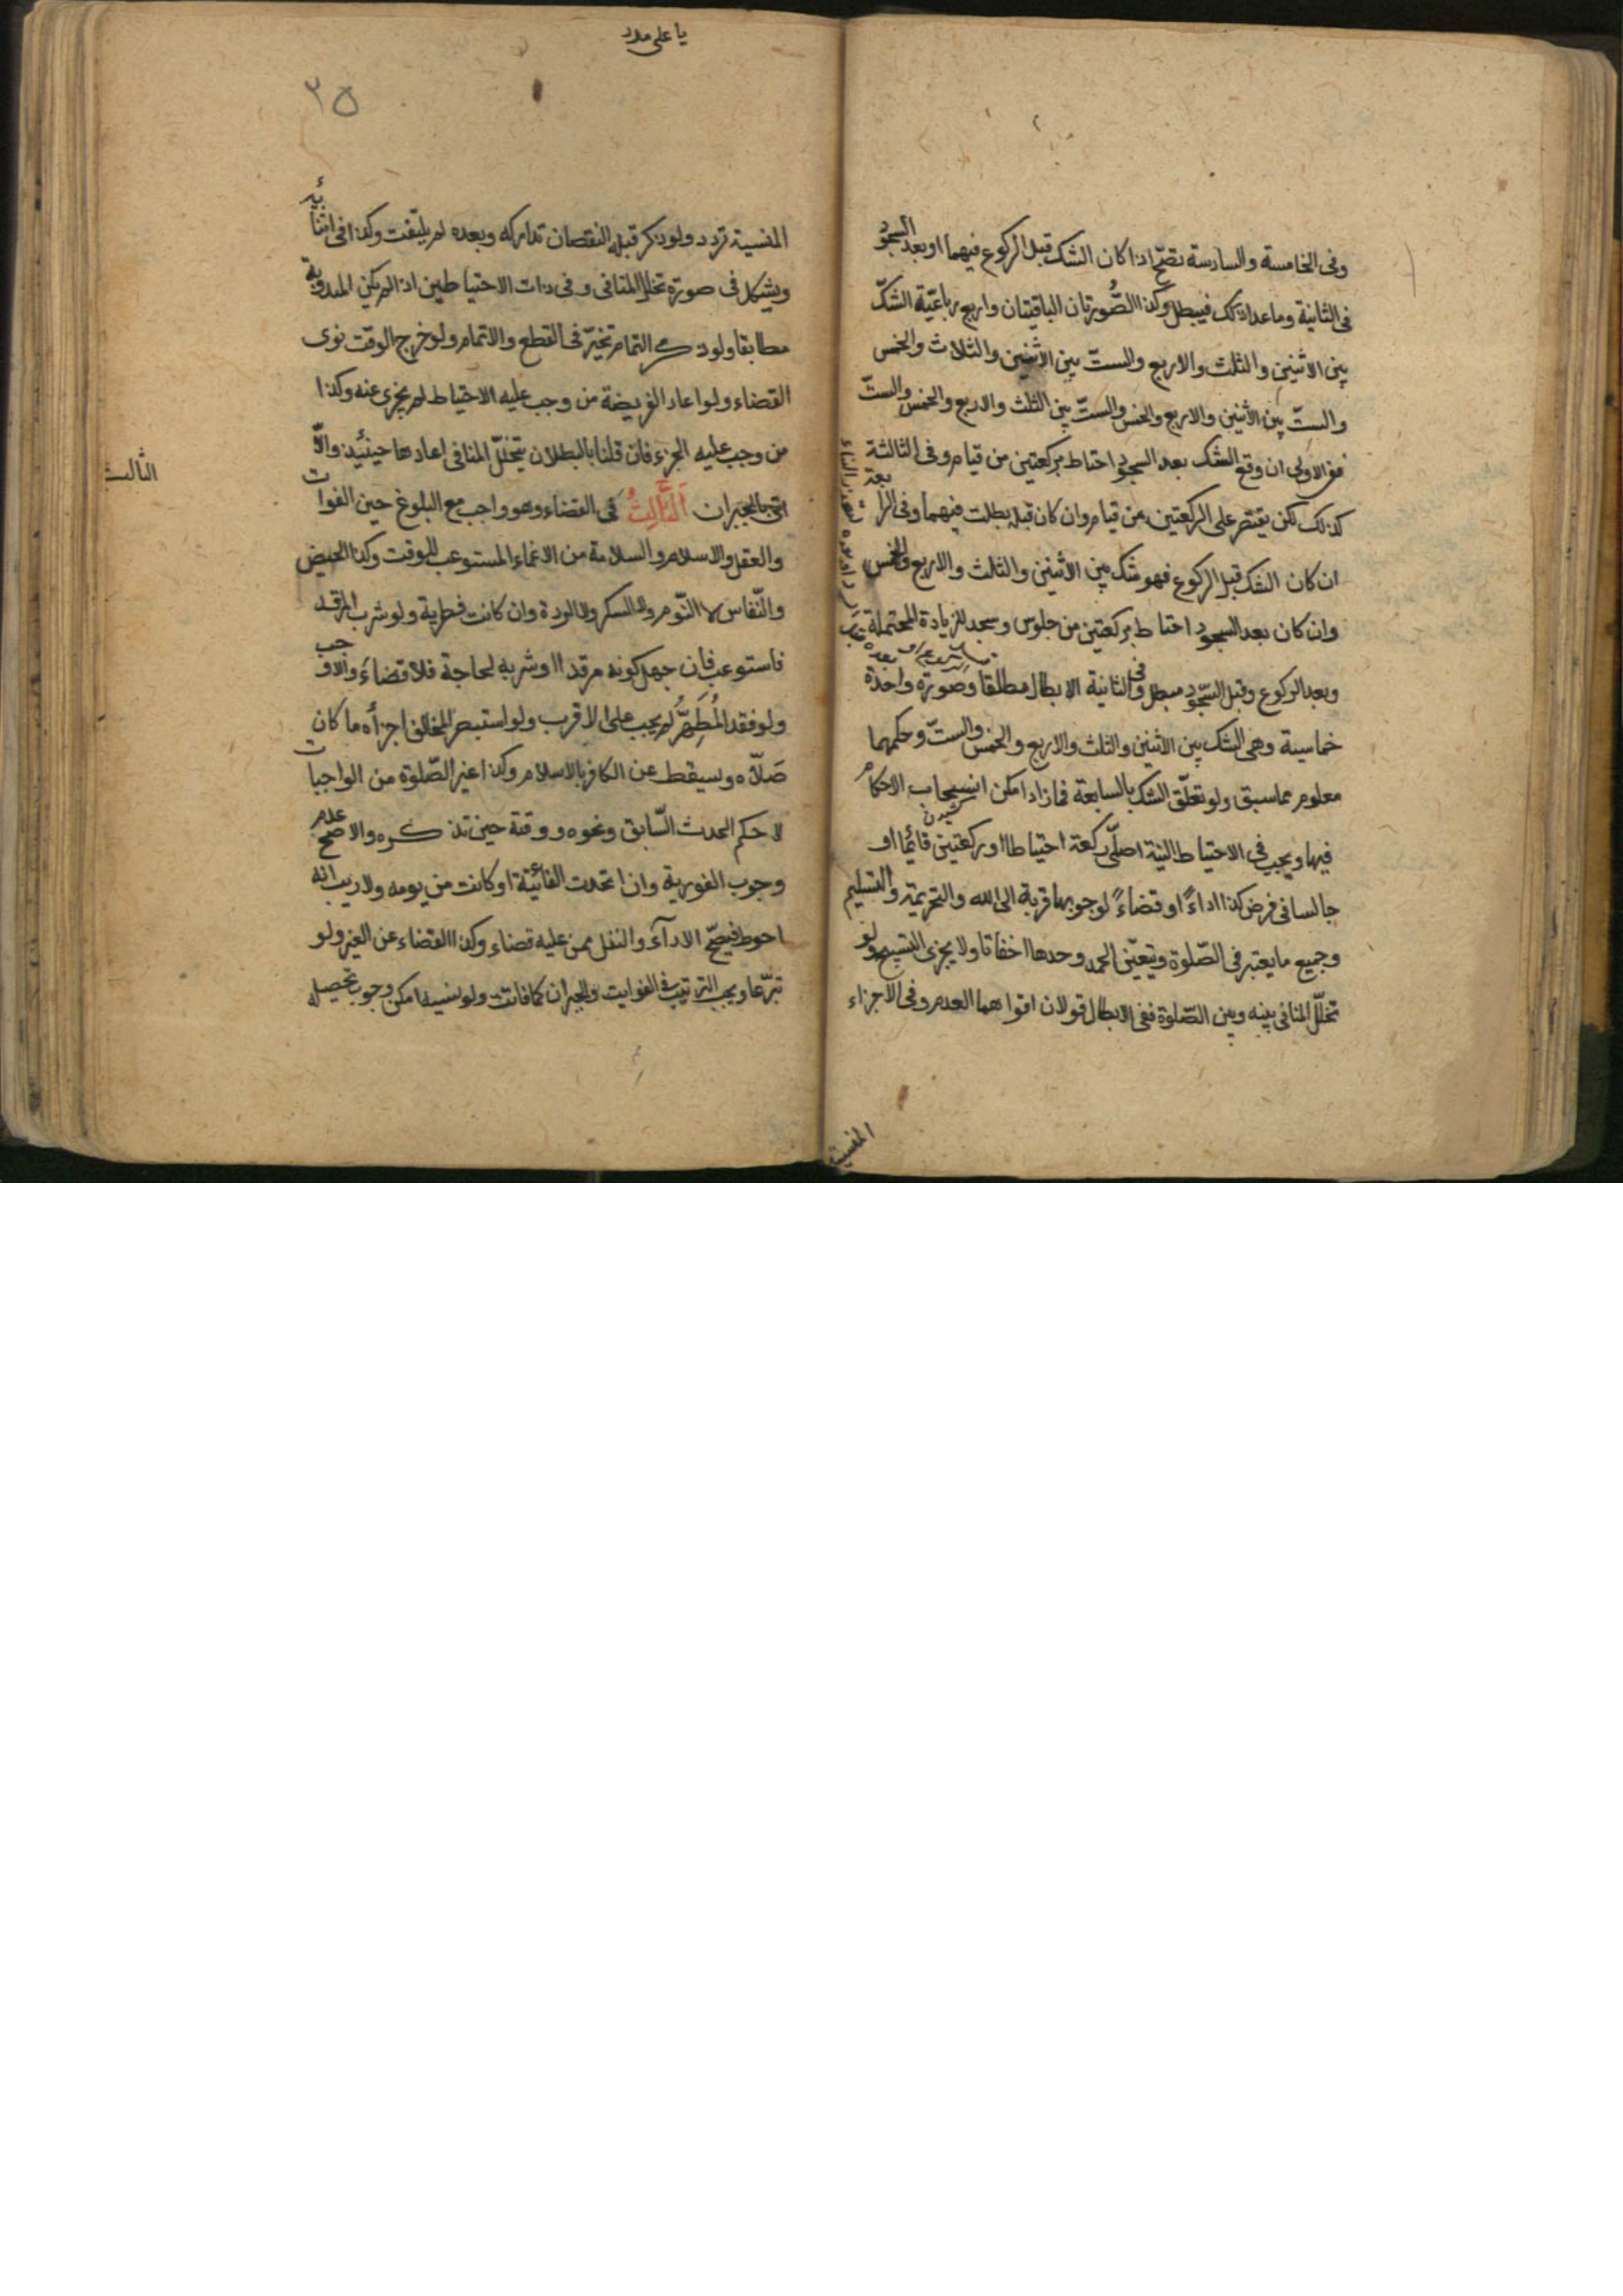 وفى الخامسة والسادسة تصحّ اذا كان الشك قبل الركوع فيهما او بعد السجود
فى الثانية وما عدا ذلك فيبطل وكذا الصُّورتان الباقيتان واربع رباعيّة الشكّ
بين الاثنين والثلث والاربع والستّ بين الاثنين والثلاث والخمس
والستّ بين الاثنين والاربع والخمس والستّ بين الثلث والاربع والخمس والستّ
ففى الاولى ان وقع الشك بعد السجود احتاط بركعتين من قيام وفى الثالثة
كذلك لكن يقتصر على الركعتين من قيام وان كان قبله بطلت فيهما وفى الرابعة
ان كان الشك قبل الركوع فهو شك بين الاثنين والثالث والاربع والخمس
وان كان بعد السجود احتاط بركعتين من جلوس وسجد للزيادة المحتملة
وبعد الركوع وقبل السّجود مبطل وفى الثانية الابطال مطلقا وصورة واحدة
خماسية وهى الشك بين الاثنين والثلث والاربع والخمس والستّ وحكمهما
معلوم مما سبق ولو تعلّق الشك بالسابعة فما زاد امكن انسحاب الاحكام
فيها ويجب فى الاحتياط النية اصلّى ركعة احتياطا او ركعتين قائما او
جالسا فى فرض كذا اداءً او قضاءً لوجوبها قربة الى الله والتحريمة والتسليم
وجميع ما يعتبر فى الصّلوة ويتعيّن الحمد وحدها اخفاتا ولا يجزى التسبيح ولو
تخلّل المنافى بينه وبين الصّلوة ففى الابطال قولان اقواهما العدم وفى الاجزاء
المنسية
يا على مدد
٣٥
المنسية تردد ولو ذكر قبله النقصان تداركه وبعده لم يلتفت وكذا فى اثنائه
ويشكل فى صورة تخلل المنافى وفى ذات الاحتياطين اذا لم يكن المبدوّ به
مطابقا ولو ذكر التمام تخيّر فى القطع والاتمام ولو خرج الوقت نوى
القضاء ولو اعاد الفريضة من وجب عليه الاحتياط لم يجزى عنه وكذا
من وجب عليه الجزء فان قلنا بالبطلان بتخلّل المنافى اعادها حينئذ والّا
اتى بالجبران اَلثَّالِثُ فى القضاء وهو واجب مع البلوغ حين الفوات
والعقل والاسلام والسلامة من الاغماء المستوعب للوقت وكذا الحيض
والنّفاس لا النّوم ولا السكر ولا الردة وان كانت فطرية ولو شرب المرقد
فاستوعب فان جهل كونه مرقدا او شربه لحاجة فلا قضاء والا وجب
ولو فقد المُطَهِّرُ لم يجب على الاقرب ولو استبصر المخالف اجزأه ما كان
صَلّاه ويسقط عن الكافر بالاسلام وكذا غير الصّلوة من الواجبات
لا حكم الحدث السّابق ونحوه ووقته حين تذكره والاصح عدم
وجوب الفورية وان اتحدت الفائتة او كانت من يومه ولا ريب انه
احوط فيصحّ الاداء والنفل ممن عليه قضاء وكذا القضاء عن الغير ولو
تبرّعا ويجب الترتيب فى الفوايت والجبران كما فاتت ولو نسيه امكن وجوب تحصيله
الثالث